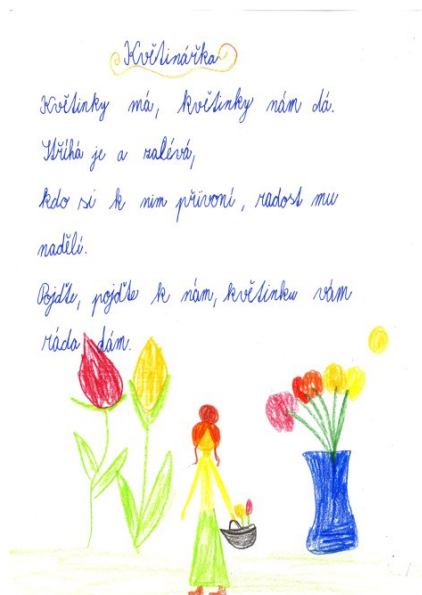 Květinářka
Květinky má, květinky nám dá.
Stříhá je a zalévá,
kdo si k nim přivoní, radost mu
nadělí.
Pojďte, pojďte k nám, květinku vám
ráda dám.